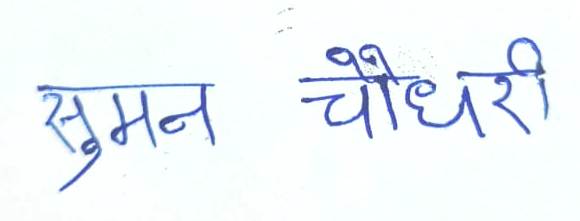 सुमन चौधरी